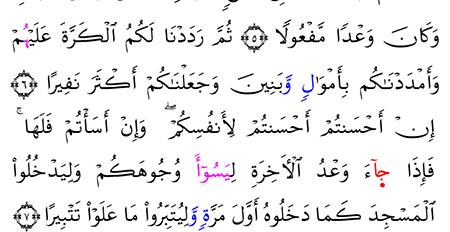 وَكَانَ وَعْدًا مَّفْعُولًا ۝٥ ثُمَّ رَدَدْنَا لَكُمُ ٱلْكَرَّةَ عَلَيْهُمْ
وَأَمْدَدْنَٰكُم بِأَمْوَٰلٍ وَّبَنِينَ وَجَعَلْنَٰكُمْ أَكْثَرَ نَفِيرًا ۝٦
إِنْ أَحْسَنتُمْ أَحْسَنتُمْ لِأَنفُسِكُمْ ۖ وَإِنْ أَسَأْتُمْ فَلَهَا ۚ
فَإِذَا جَآءَ وَعْدُ ٱلْأَخِرَةِ لِيَسُوٓأَ وُجُوهَكُمْ وَلِيَدْخُلُوا۟
ٱلْمَسْجِدَ كَمَا دَخَلُوهُ أَوَّلَ مَرَّةٍ وَّلِيُتَبِّرُوا۟ مَا عَلَوْا۟ تَتْبِيرًا ۝٧